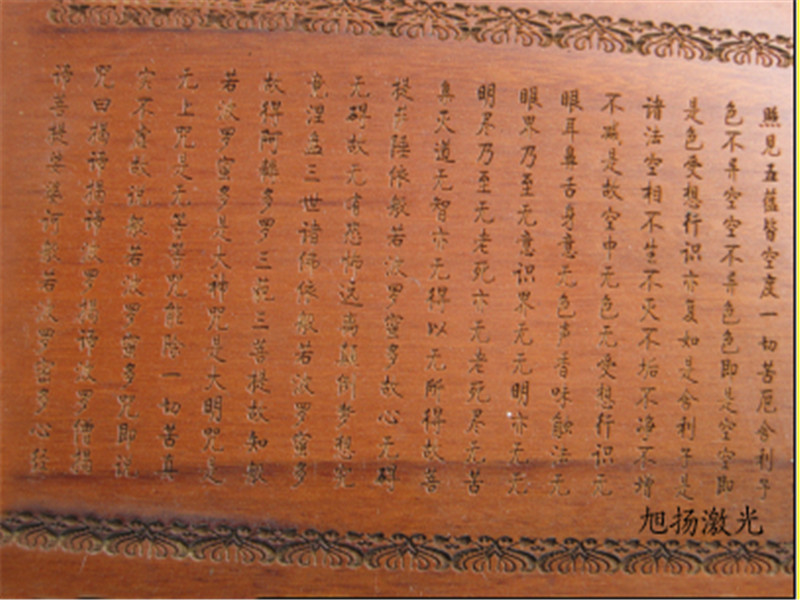 照见五蕴皆空度一切苦厄舍利子
色不异空空不异色色即是空空即
是色受想行识亦复如是舍利子是
诸法空相不生不灭不垢不净不增
不减是故空中无色无受想行识无
眼耳鼻舌身意无色声香味触法无
眼界乃至无意识界无无明亦无无
明尽乃至无老死亦无老死尽无苦
集灭道无智亦无得以无所得故菩
提萨埵依般若波罗蜜多故心无碍
无碍故无有恐怖远离颠倒梦想究
竟涅盘三世诸佛依般若波罗蜜多
故得阿耨多罗三藐三菩提故知般
若波罗蜜多是大神咒是大明咒是
无上咒是无等等咒能除一切苦真
实不虚故说般若波罗蜜多咒即说
咒曰揭谛揭谛波罗揭谛波罗僧揭
谛菩提娑婆诃般若波罗蜜多心经
旭扬激光